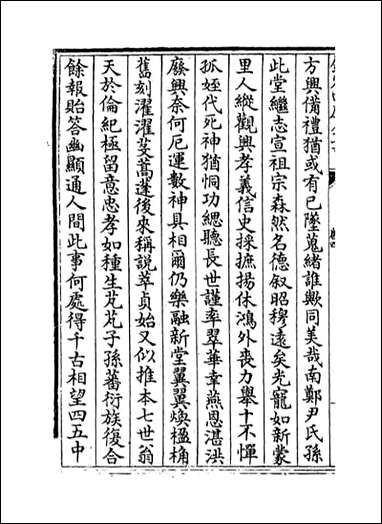 方興備禮猶或有已墜蒐緒誰歟同美哉南鄭尹氏孫
此堂繼志宣祖宗森然名德叙昭穆遠矣光寵如新蒙
里人縱觀興孝義信史採摭揚休鴻外喪力舉十不憚
孤姪代死神猶恫功緦聽長世謹率翠華幸燕恩湛洪
廢興奈何厄運數神具相爾仍樂融新堂翼翼煥楹桷
舊刻濯濯芟蒿蓬後來稱說萃貞始又似推本七世翁
天於倫紀極留意忠孝如種生芃芃子孫蕃衍族復合
餘報貽答幽顯通人間此事何處得千古相望四五中